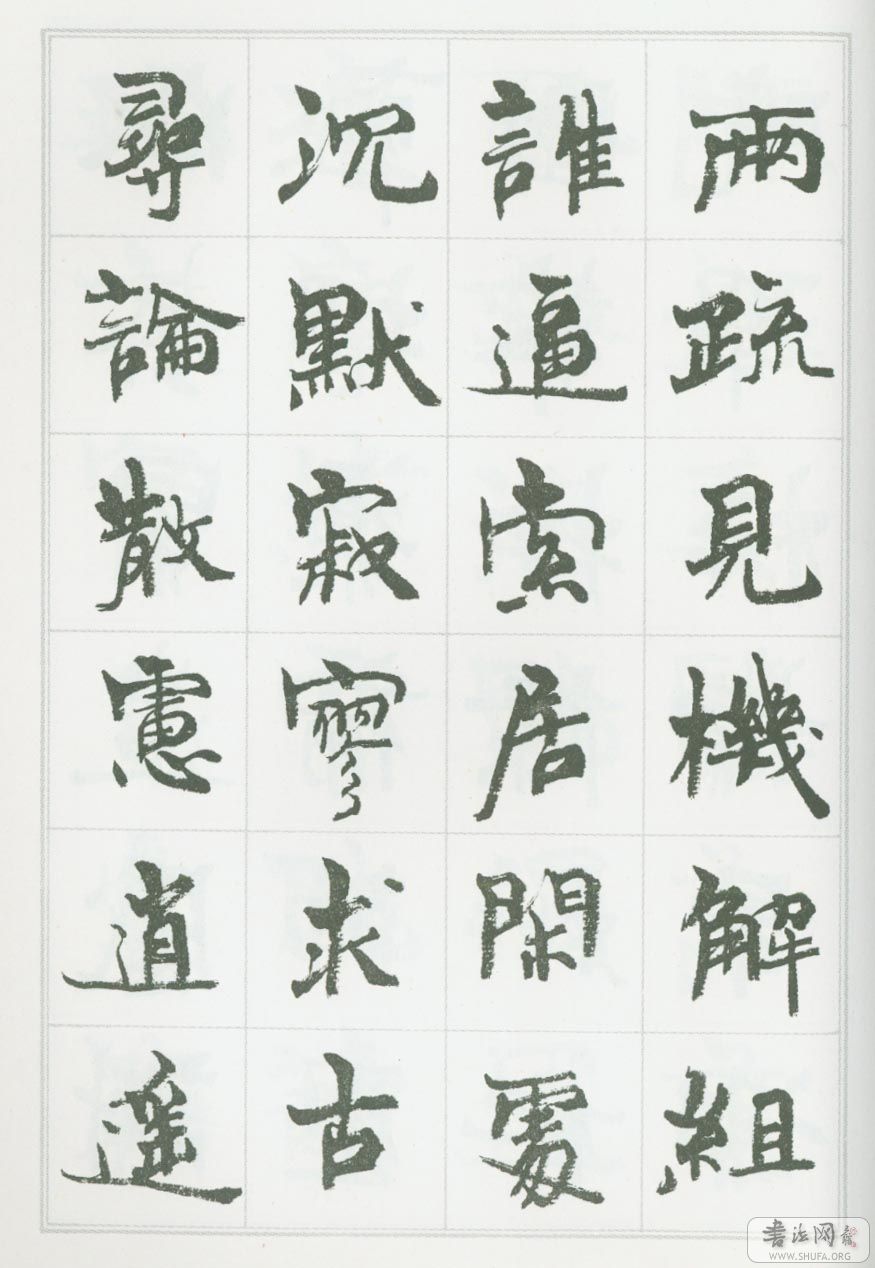 兩疏見機解組
誰逼索居閑處
沉默寂寥求古
尋論散慮逍遥
書法网
WWW.SHUFA.ORG